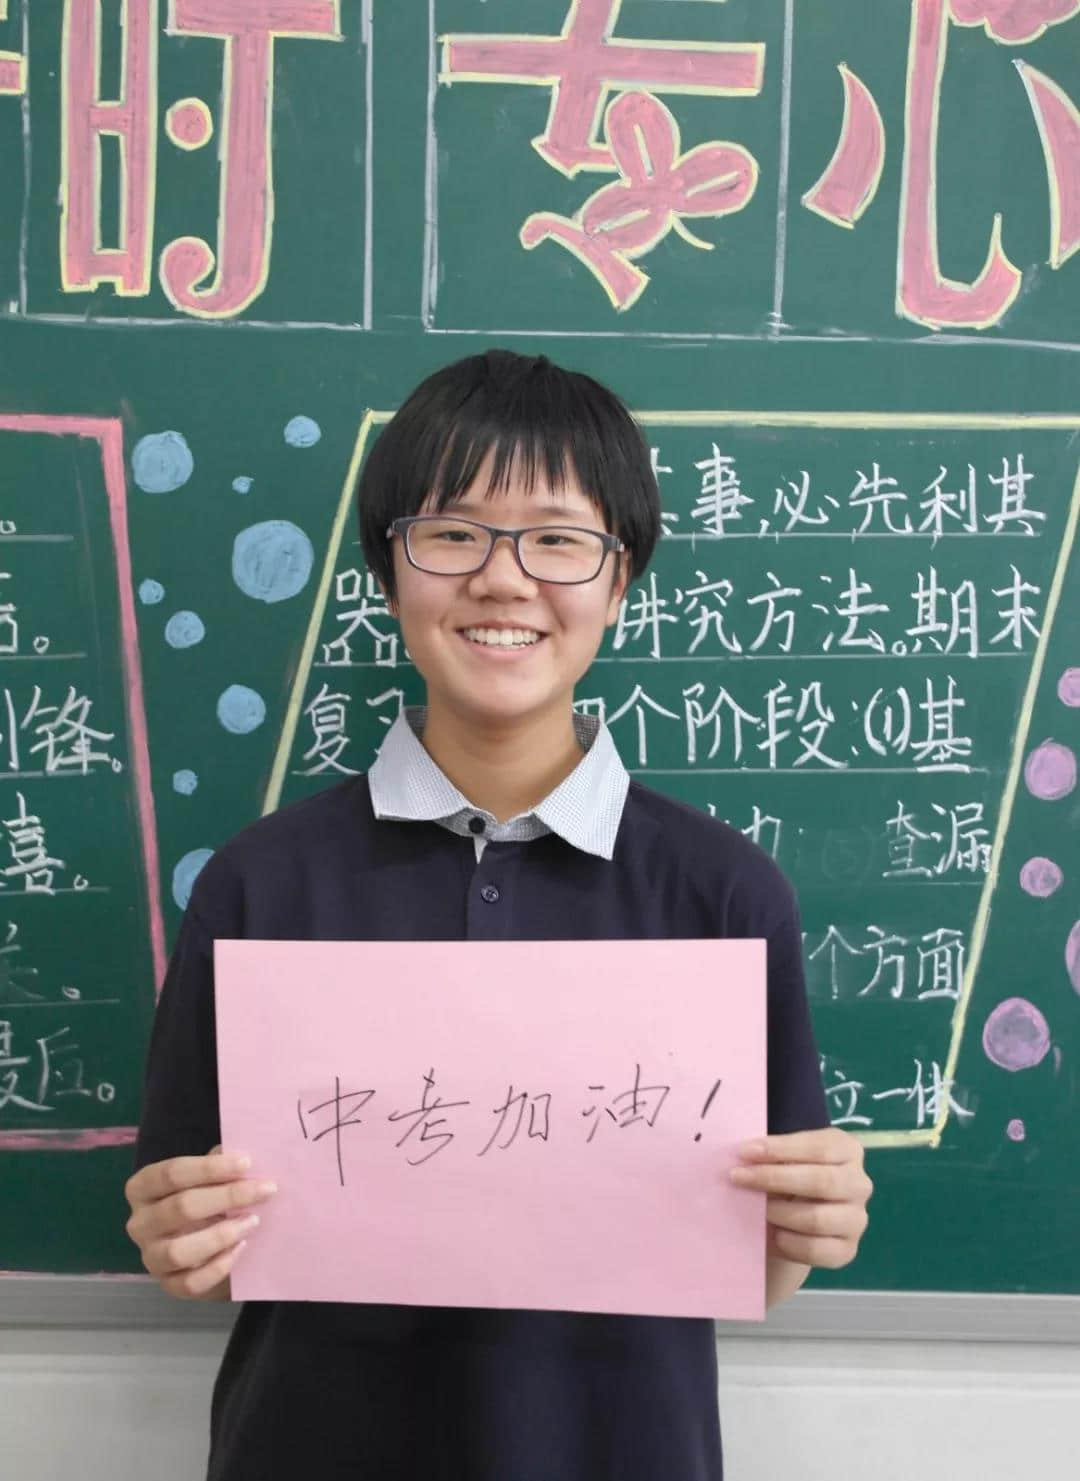 时专心
。
。
锋。
喜。
。
后。
事,必先利其
器 讲究方法。期末
复 个阶段:(1)基
查漏
个方面
位一体
中考加油!